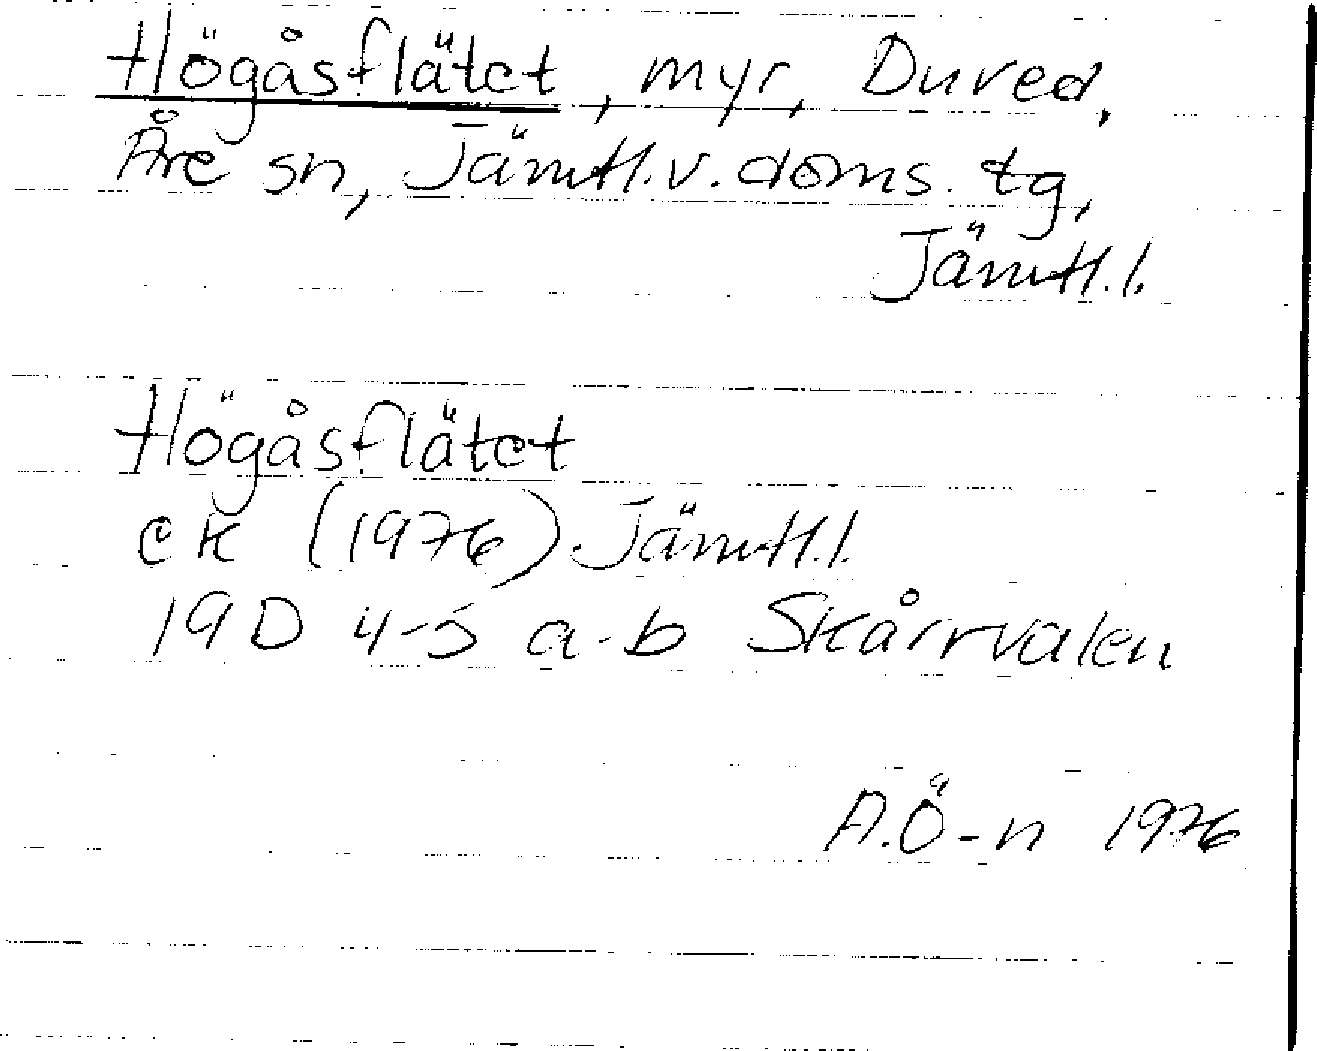 Högåsflätet, myr, Dured,
Åre sn, Jämtl.v.doms.tg,
Jämtl.l.
Högåsflätet
ek (1976) Jämtl.l.
19D 4-5 a-b Skårrvalen
A.Ö-n 1976